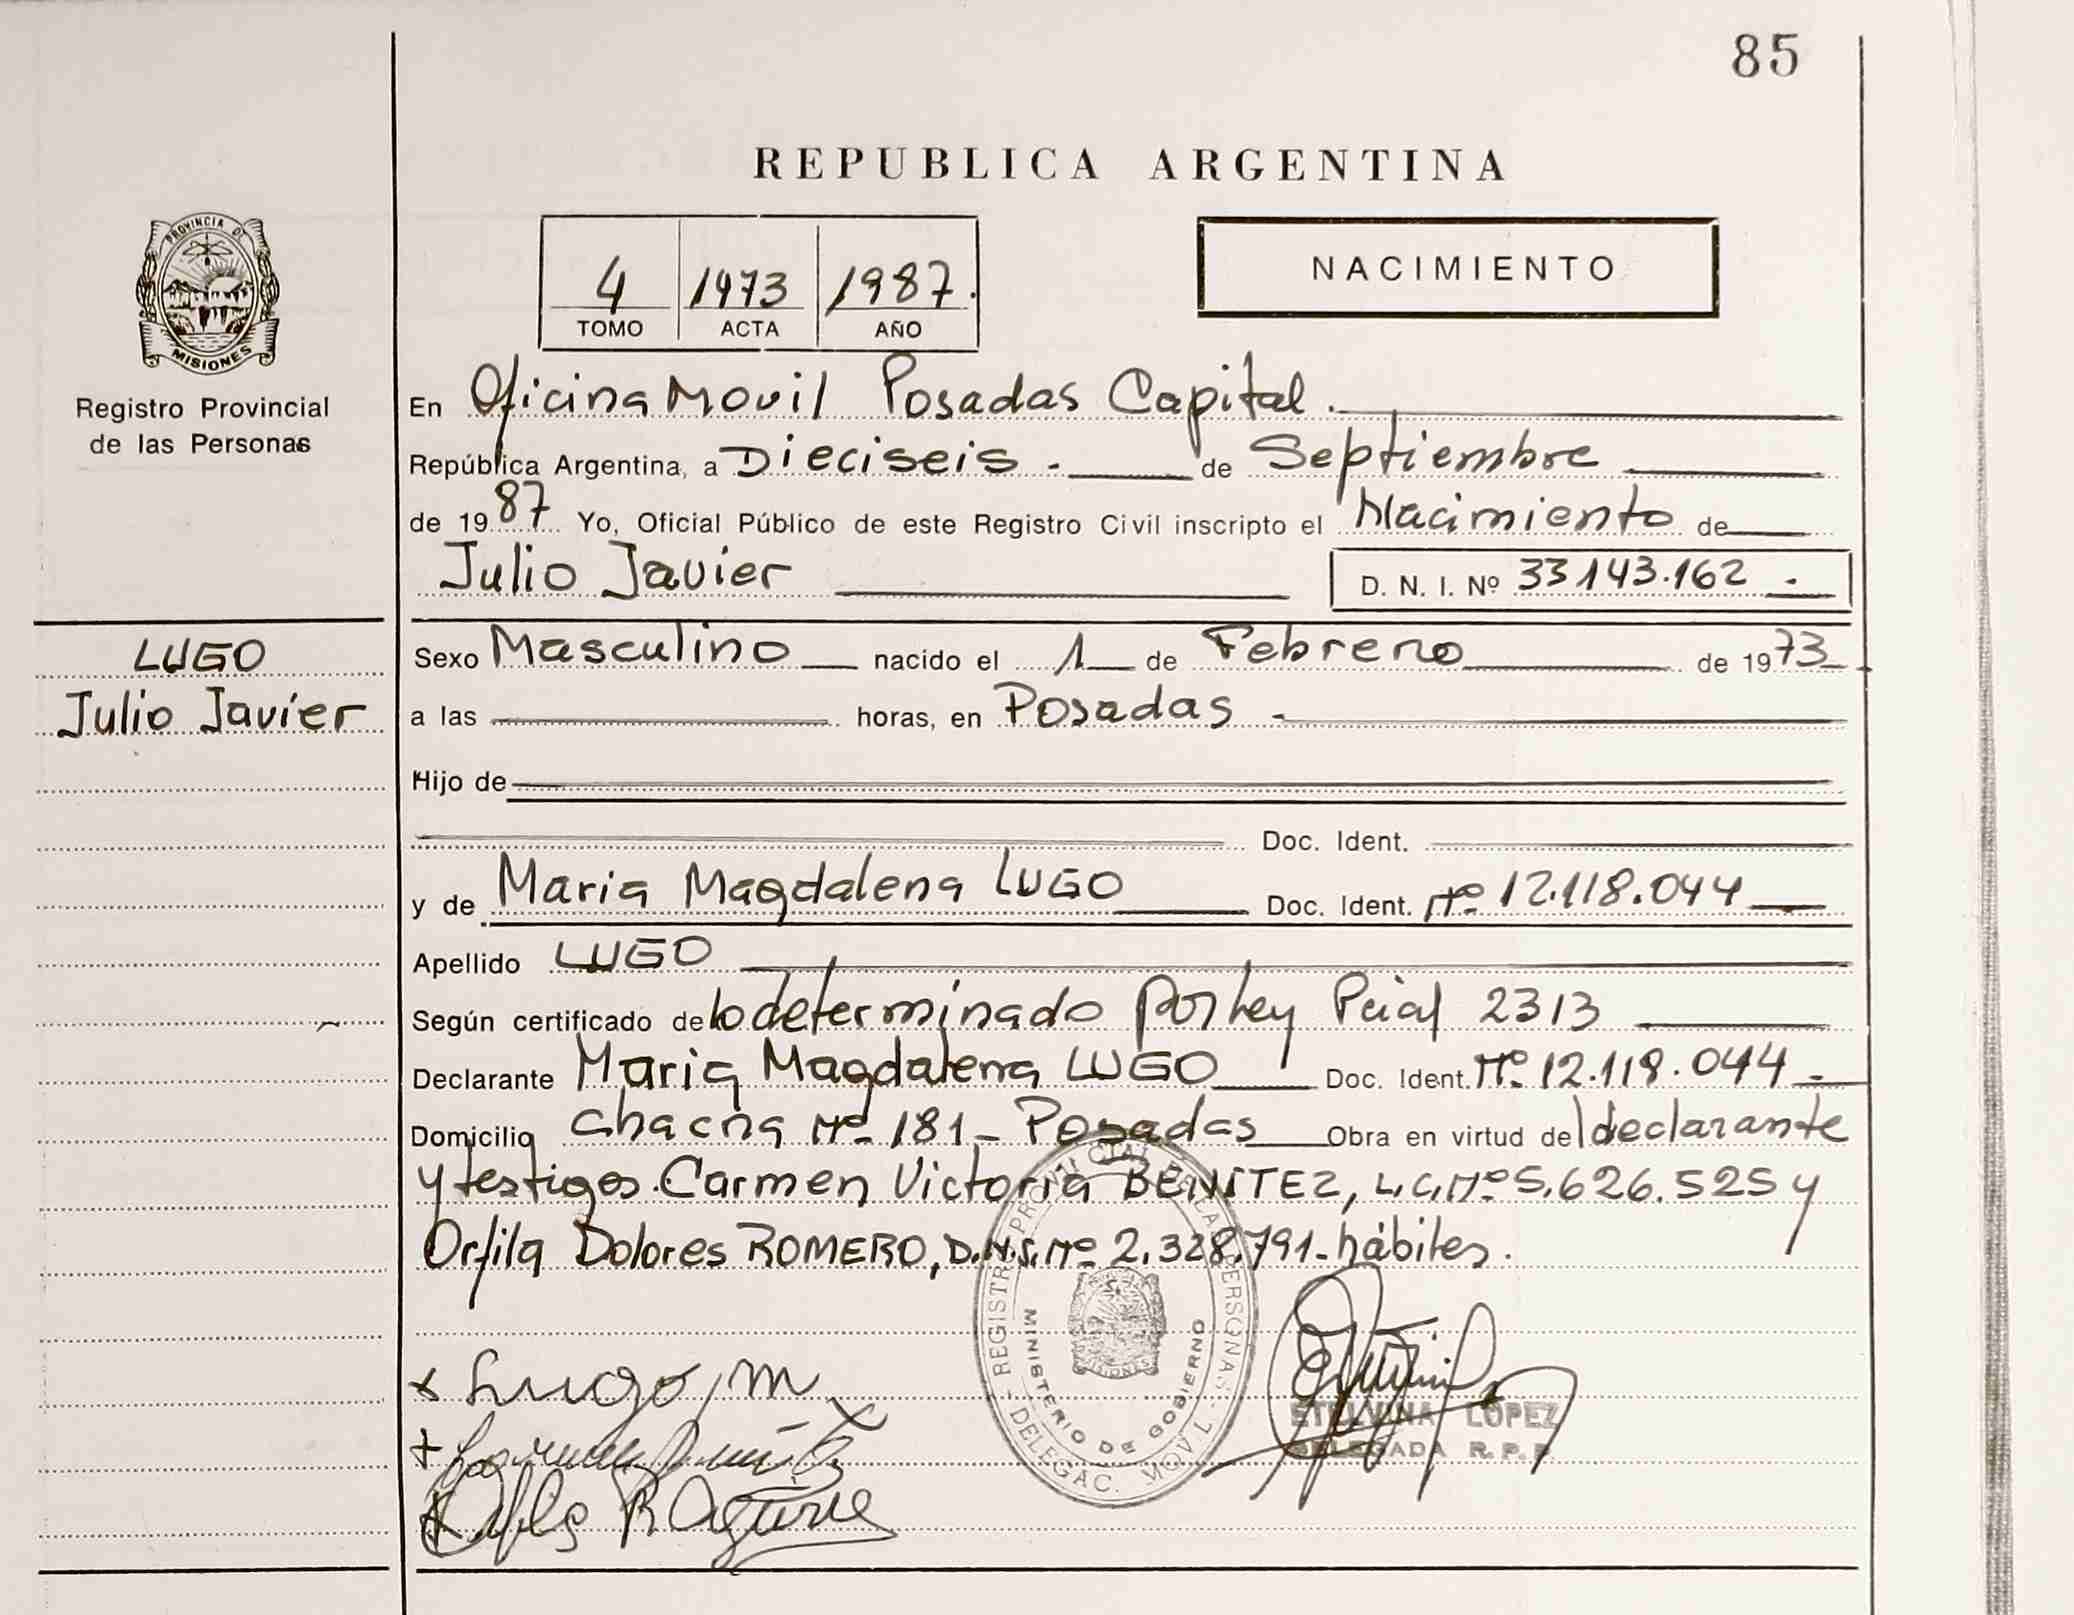 85
REPUBLICA ARGENTINA
PROVINCIA DE
MISIONES
Registro Provincial
de las Personas
4 1473 1987.
TOMO ACTA AÑO
NACIMIENTO
En Oficina Movil Posadas Capital.
República Argentina, a Dieciseis.- de Septiembre
de 1987 Yo, Oficial Público de este Registro Civil inscripto el Nacimiento de
Julio Javier D. N. I. Nº 33143.162 -
LUGO
Julio Javier
Sexo Masculino nacido el 1 de Febrero de 1973
a las horas, en Posadas -
Hijo de
Doc. Ident.
y de Maria Magdalena LUGO Doc. Ident. Nº 12.118.044
Apellido LUGO
Según certificado de lo determinado por Ley Pcial 2313
Declarante Maria Magdalena LUGO Doc. Ident. Nº 12.118.044 -
Domicilio Chacra Nº 181 - Posadas Obra en virtud de declarante
y testigos. Carmen Victoria BENITEZ, L.C. Nº 5.626.525 y
Orfila Dolores ROMERO, D.N.I. Nº 2.328.791 - hábiles.
REGISTRO PROVINCIAL DE LAS PERSONAS
MINISTERIO DE GOBIERNO
DELEGAC. MOVIL
MISIONES
x Lugo, M
ETELVINA LOPEZ
DELEGADA R. P. P.